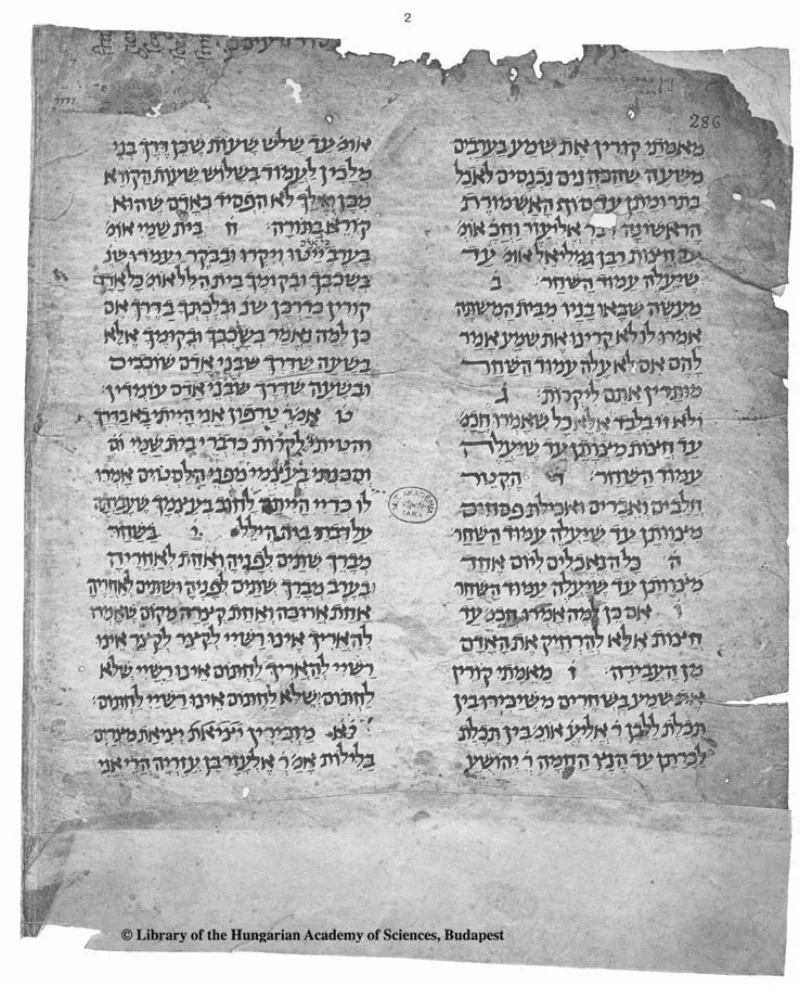 2
286
מאמתי קורין את שמע בערבים
משעה שהכהנים נכנסים לאכל
בתרומתן עד סוף האשמורת
הראשונה דבר אליעזר וחכ אומ
עד חצות רבן גמליאל אומ עד
שיעלה עמוד השחר ב
מעשה שבאו בניו מבית המשתה
אמרו לו לא קרינו את שמע אמר
להם אם לא עלה עמוד השחר
מותרין אתם ליקרות ג
ולא זו בלבד אלא כל שאמרו חכמ
עד חצות מצותן עד שיעלה
עמוד השחר ד הקטר
חלבים ואברים ואכילת פסחים
מיצוותן עד שיעלה עמוד השחר
ה כל הנאכלים ליום אחד
מיצותן עד שיעלה עמוד השחר
אם כן למה אמרו חכמ עד
חצות אלא להרחיק את האדם
מן העבירה ו מאמתי קורין
את שמע בשחרים משיכירו בין
תכלת ללבן ר אליע אומ בין תכלת
לכרתן עד הנץ החמה ר יהושע
אומ עד שלש שעות שכן דרך בני
מלכין לעמוד בשלוש שעות הקורא
מכן ואילך לא הפסיד כאדם שהוא
קורא בתורה ח בית שמי אומ
בערב ייטו ויקרו ובבקר יעמדו שנ
בשכבך ובקומך בית הלל אומ כל אדם
קורין כדרכן שנ ובלכתך בדרך אם
כן למה נאמר בשכבך ובקומך אלא
בשעה שדרך שבני אדם שוכבים
ובשעה שדרך שבני אדם עומדין
ט אמר טרפון אני הייתי בא בדרך
והטיתי לקרות כדברי בית שמי
וסכנתי בעצמי מפני הלסטים אמרו
לו כדיי הייתה לחוב בעצמך שעברתה
על דברי בית הילל י בשחר
מברך שתים לפניה ואחת לאחריה
ובערב מברך שתים לפניה ושתים לאחריה
אחת ארוכה ואחת קיצרה מקום שאמרו
להאריך אינו רשיי לקיצר לקיצר אינו
רשיי להאריך לחתום אינו רשיי שלא
לחתום שלא לחתום אינו רשיי לחתום
יא מזכירין יציאת יציאת מצרים
בלילות אמ ר אלעזר בן עזריה הרי אני
© Library of the Hungarian Academy of Sciences, Budapest